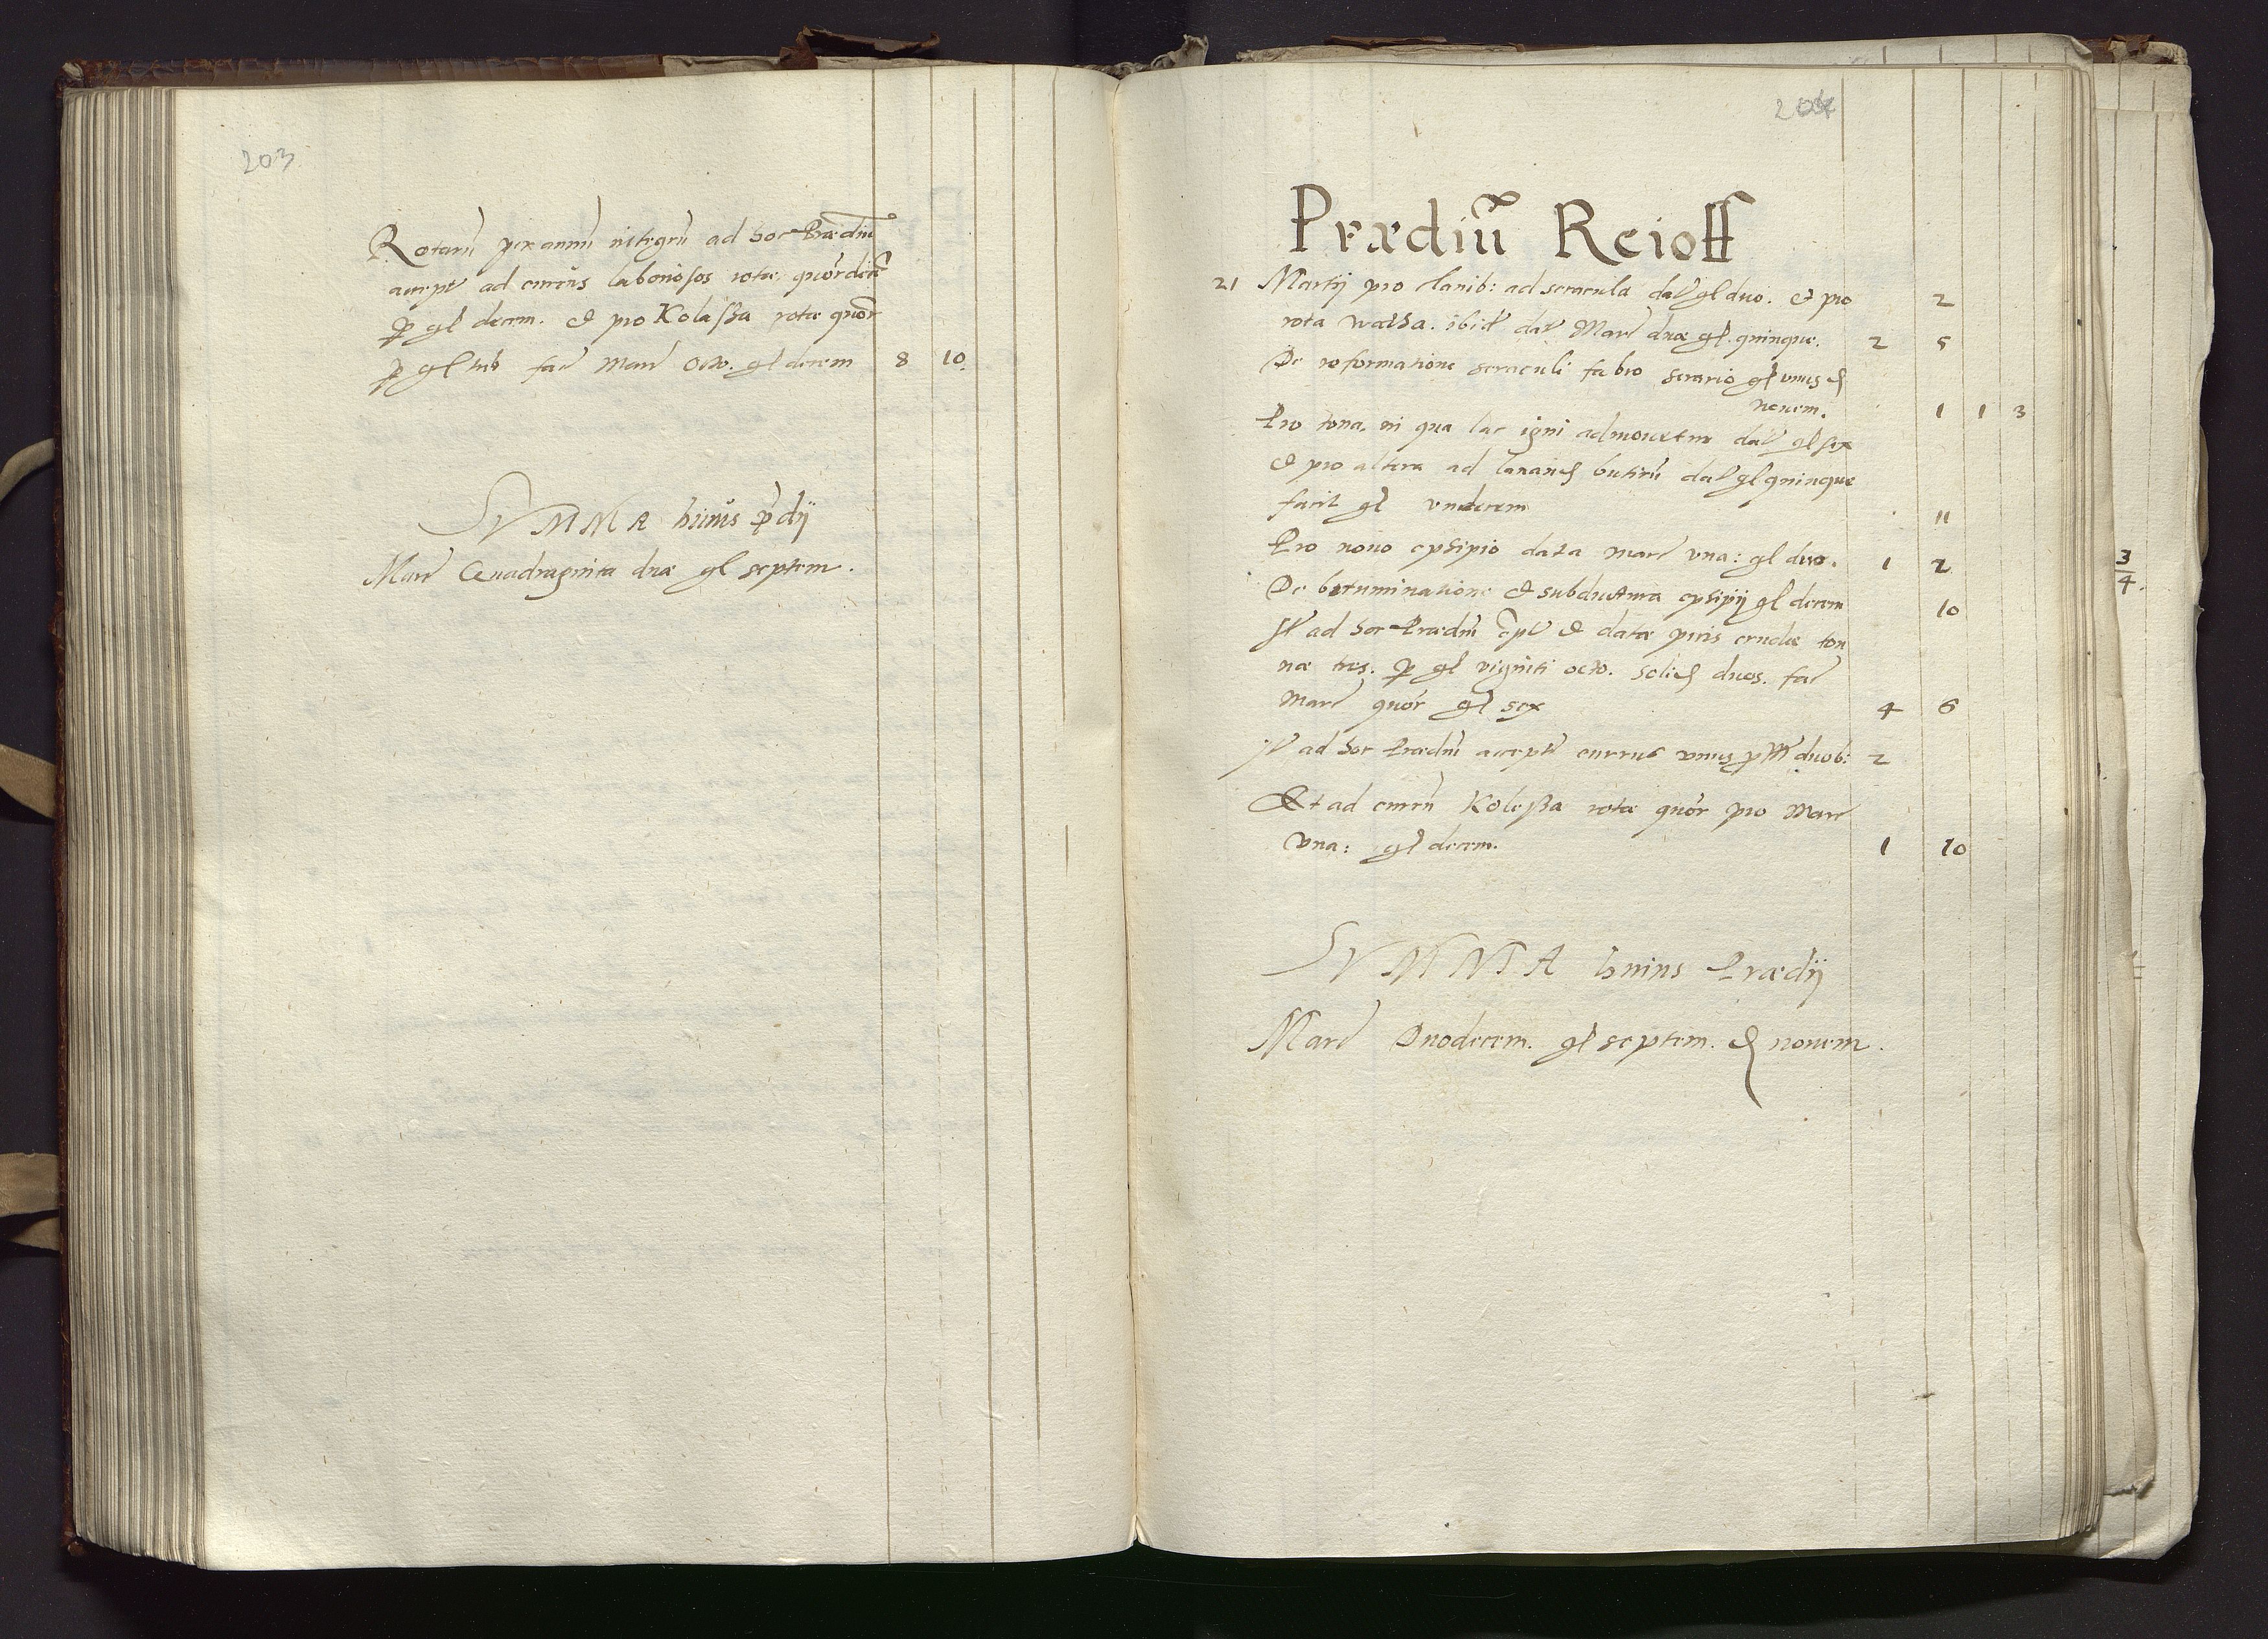 203
Rotarū per annū integrū ad hoc Prædiū
accept ad currus laboriosos rotæ quordecī
ꝑ gl decem. & pro Kolassa rotæ quor
ꝑ gl fac Marc Octo. gl decem 8 10.
SVMMA huius p̄dij
Marc Quadraginta duæ gl septem.
204
Prædiū Reioff
21 Martij pro clanib: ad seracula dat gl duo. & pro 2
rota ibid dat Marc duæ gl. quinque. 2 5
De reformatione seraculi fabro serario gl unus
novem. 1 1 3
Pro tona. in qua lac igni admovetur dat gl sex
& pro altera ad butirū dat gl quinque
facit gl vndecem 11
Pro novo epsipio data marc vna: gl duo. 1 2
De betuminatione & subductura epsipij gl decem 10
It ad hoc Prædiū & datæ picis crudæ ton
næ tres. ꝑ gl viginti octo. duos. fac
Marc quor gl sex 4 6
It ad hoc Prædiū accept currus unus duob: 2
Et ad currū Kolessa rotæ quor pro Marc
Vna: gl decem. 1 10
SVMMA huius Prædij
Marc Duodecem. gl septem. ₰ novem.
3
4.